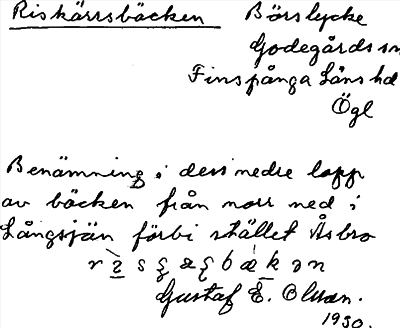 Riskärrsbäcken Börslycke
Godegårds sn
Finspånga läns hd
Ögl
Benämning i dess nedre lopp
av bäcken från norr ned i
Långsjön förbi stället Åsbro
Gustaf E. Olsson.
1930.